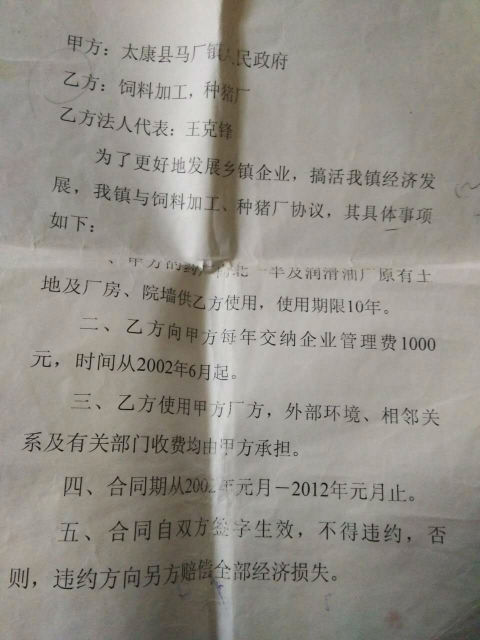 甲方：太康县马厂镇人民政府
乙方：饲料加工，种猪厂
乙方法人代表：王克锋
为了更好地发展乡镇企业，搞活我镇经济发
展，我镇与饲料加工、种猪厂协议，其具体事项
如下：
、甲方的药厂南北一半及润滑油厂原有土
地及厂房、院墙供乙方使用，使用期限10年。
二、乙方向甲方每年交纳企业管理费1000
元，时间从2002年6月起。
三、乙方使用甲方厂方，外部环境、相邻关
系及有关部门收费均由甲方承担。
四、合同期从2002年元月－2012年元月止。
五、合同自双方签字生效，不得违约，否
则，违约方向另方赔偿全部经济损失。